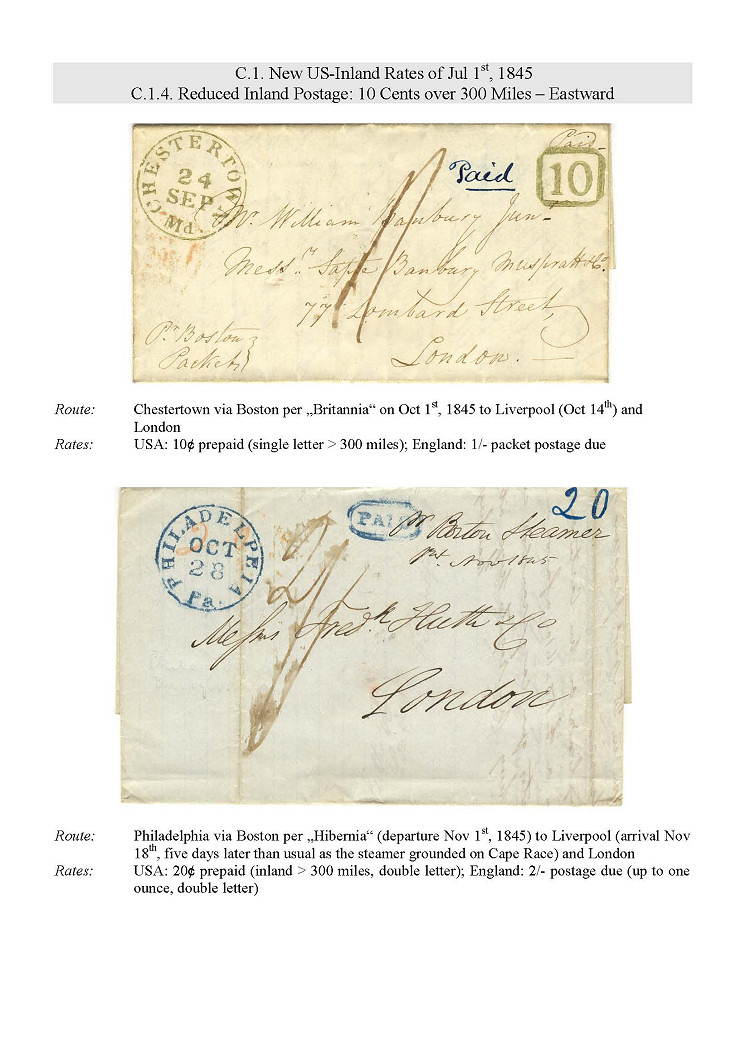 C.1. New US-Inland Rates of Jul 1st, 1845
C.1.4. Reduced Inland Postage: 10 Cents over 300 Miles – Eastward
CHESTERTOWN
24
SEP
Md.
Paid
Paid
10
Mr. William Banbury Junr
Messrs Sapte Banbury Muspratt & Co.
77 Lombard Street,
London.
Pr Boston
Packet
Route: Chestertown via Boston per „Britannia“ on Oct 1st, 1845 to Liverpool (Oct 14th) and
London
Rates: USA: 10¢ prepaid (single letter > 300 miles); England: 1/- packet postage due
PHILADELPHIA
OCT
28
Pa.
PAID
20
pr Boston Steamer
1st Nov 1845
2
2/
Messrs Fredk Huth & Co
London
Route: Philadelphia via Boston per „Hibernia“ (departure Nov 1st, 1845) to Liverpool (arrival Nov
18th, five days later than usual as the steamer grounded on Cape Race) and London
Rates: USA: 20¢ prepaid (inland > 300 miles, double letter); England: 2/- postage due (up to one
ounce, double letter)